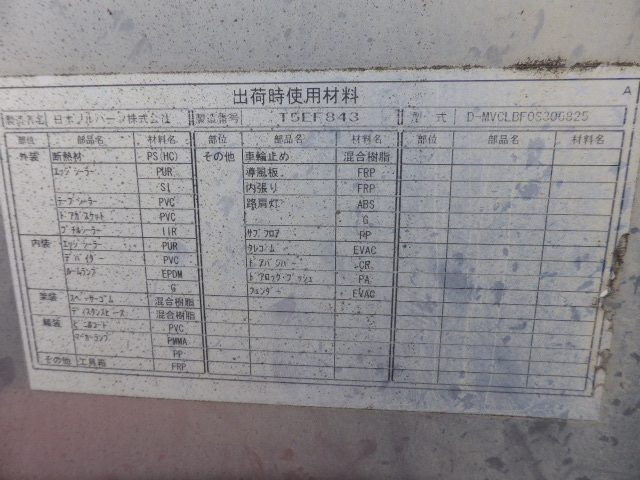 出荷時使用材料
A
製造者名 日本フルハーフ株式会社 製造番号 T5EF843 型 式 D-MVCLBF0S306825
部位 部品名 材料名 部位 部品名 材料名 部位 部品名 材料名
外装 断熱材 PS(HC) その他 車輪止め 混合樹脂
エッジシーラー PUR 導風板 FRP
SI 内張り FRP
テープシーラー PVC 路肩灯 ABS
ドアガスケット PVC G
ブチルシーラー IIR サブフロア RP
内装 エッジシーラー PUR クレゴム EVAC
デバイダ PVC ドアバンパー CR
ルームランプ EPDM ドアロック・ブッシュ PA
G フェンダー EVAC
スペーサーゴム 混合樹脂
ディスタンスピース 混合樹脂
艤装 ビニルコート PVC
マーカーランプ PMMA
PP
その他 工具箱 FRP